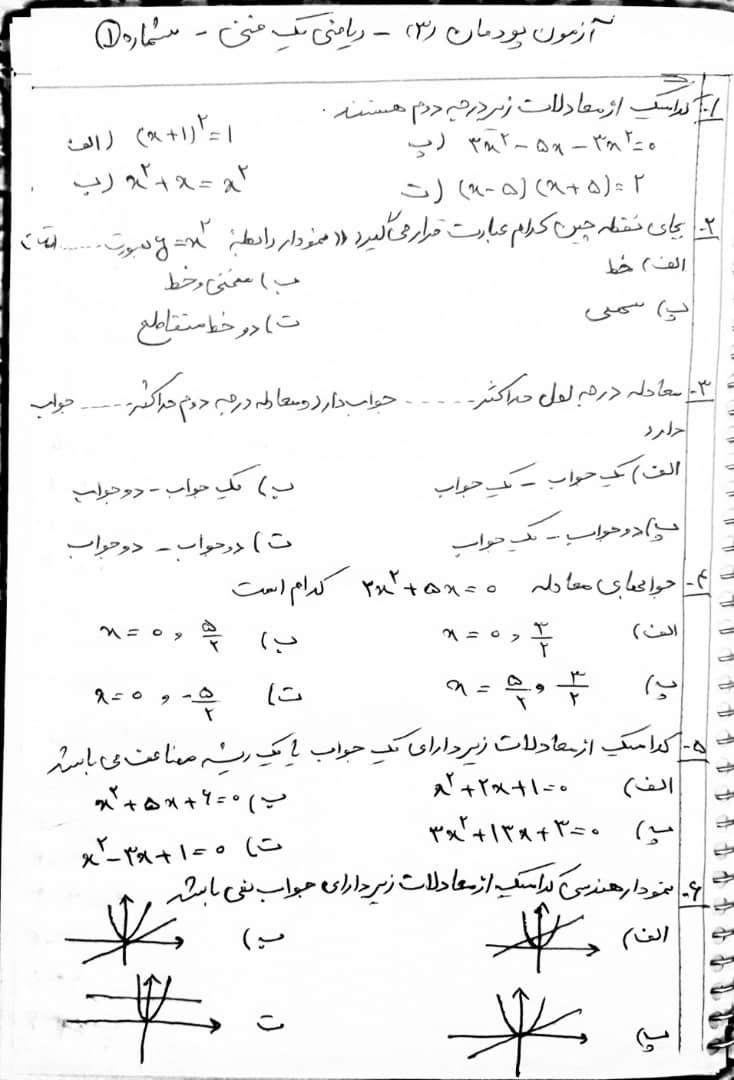 آزمون پودمان (۳) - ریاضی یک فنی - شماره ①
۱- کدامیک از معادلات زیر درجه دوم هستند.
الف) (x+1)²=1 پ) ۳x²-۵x-۳x²=۰
ب) x²+x=x² ت) (x-۵)(x+۵)=۲
۲- بجای نقطه چین کدام عبارت قرار می‌گیرد «نمودار رابطهٔ y=x² بصورت ...... است»
الف) خط ب) منحنی و خط
پ) سهمی ت) دو خط متقاطع
۳- معادله درجه اول حداکثر ...... جواب دارد و معادله درجه دوم حداکثر ...... جواب
دارد
الف) یک جواب - یک جواب ب) یک جواب - دو جواب
پ) دو جواب - یک جواب ت) دو جواب - دو جواب
۴- جوابهای معادله ۲x²+۵x=۰ کدام است
الف) x=۰ , ۳/۲ ب) x=۰ , ۵/۲
پ) x=۵/۲ , ۳/۲ ت) x=۰ , -۵/۲
۵- کدامیک از معادلات زیر دارای یک جواب یا یک ریشه مضاعف می باشد
الف) x²+۲x+۱=۰ ب) x²+۵x+۶=۰
پ) ۳x²+۱۳x+۳=۰ ت) x²-۳x+۱=۰
۶- نمودار هندسی کدامیک از معادلات زیر دارای جواب نمی باشد
الف) ب)
پ) ت